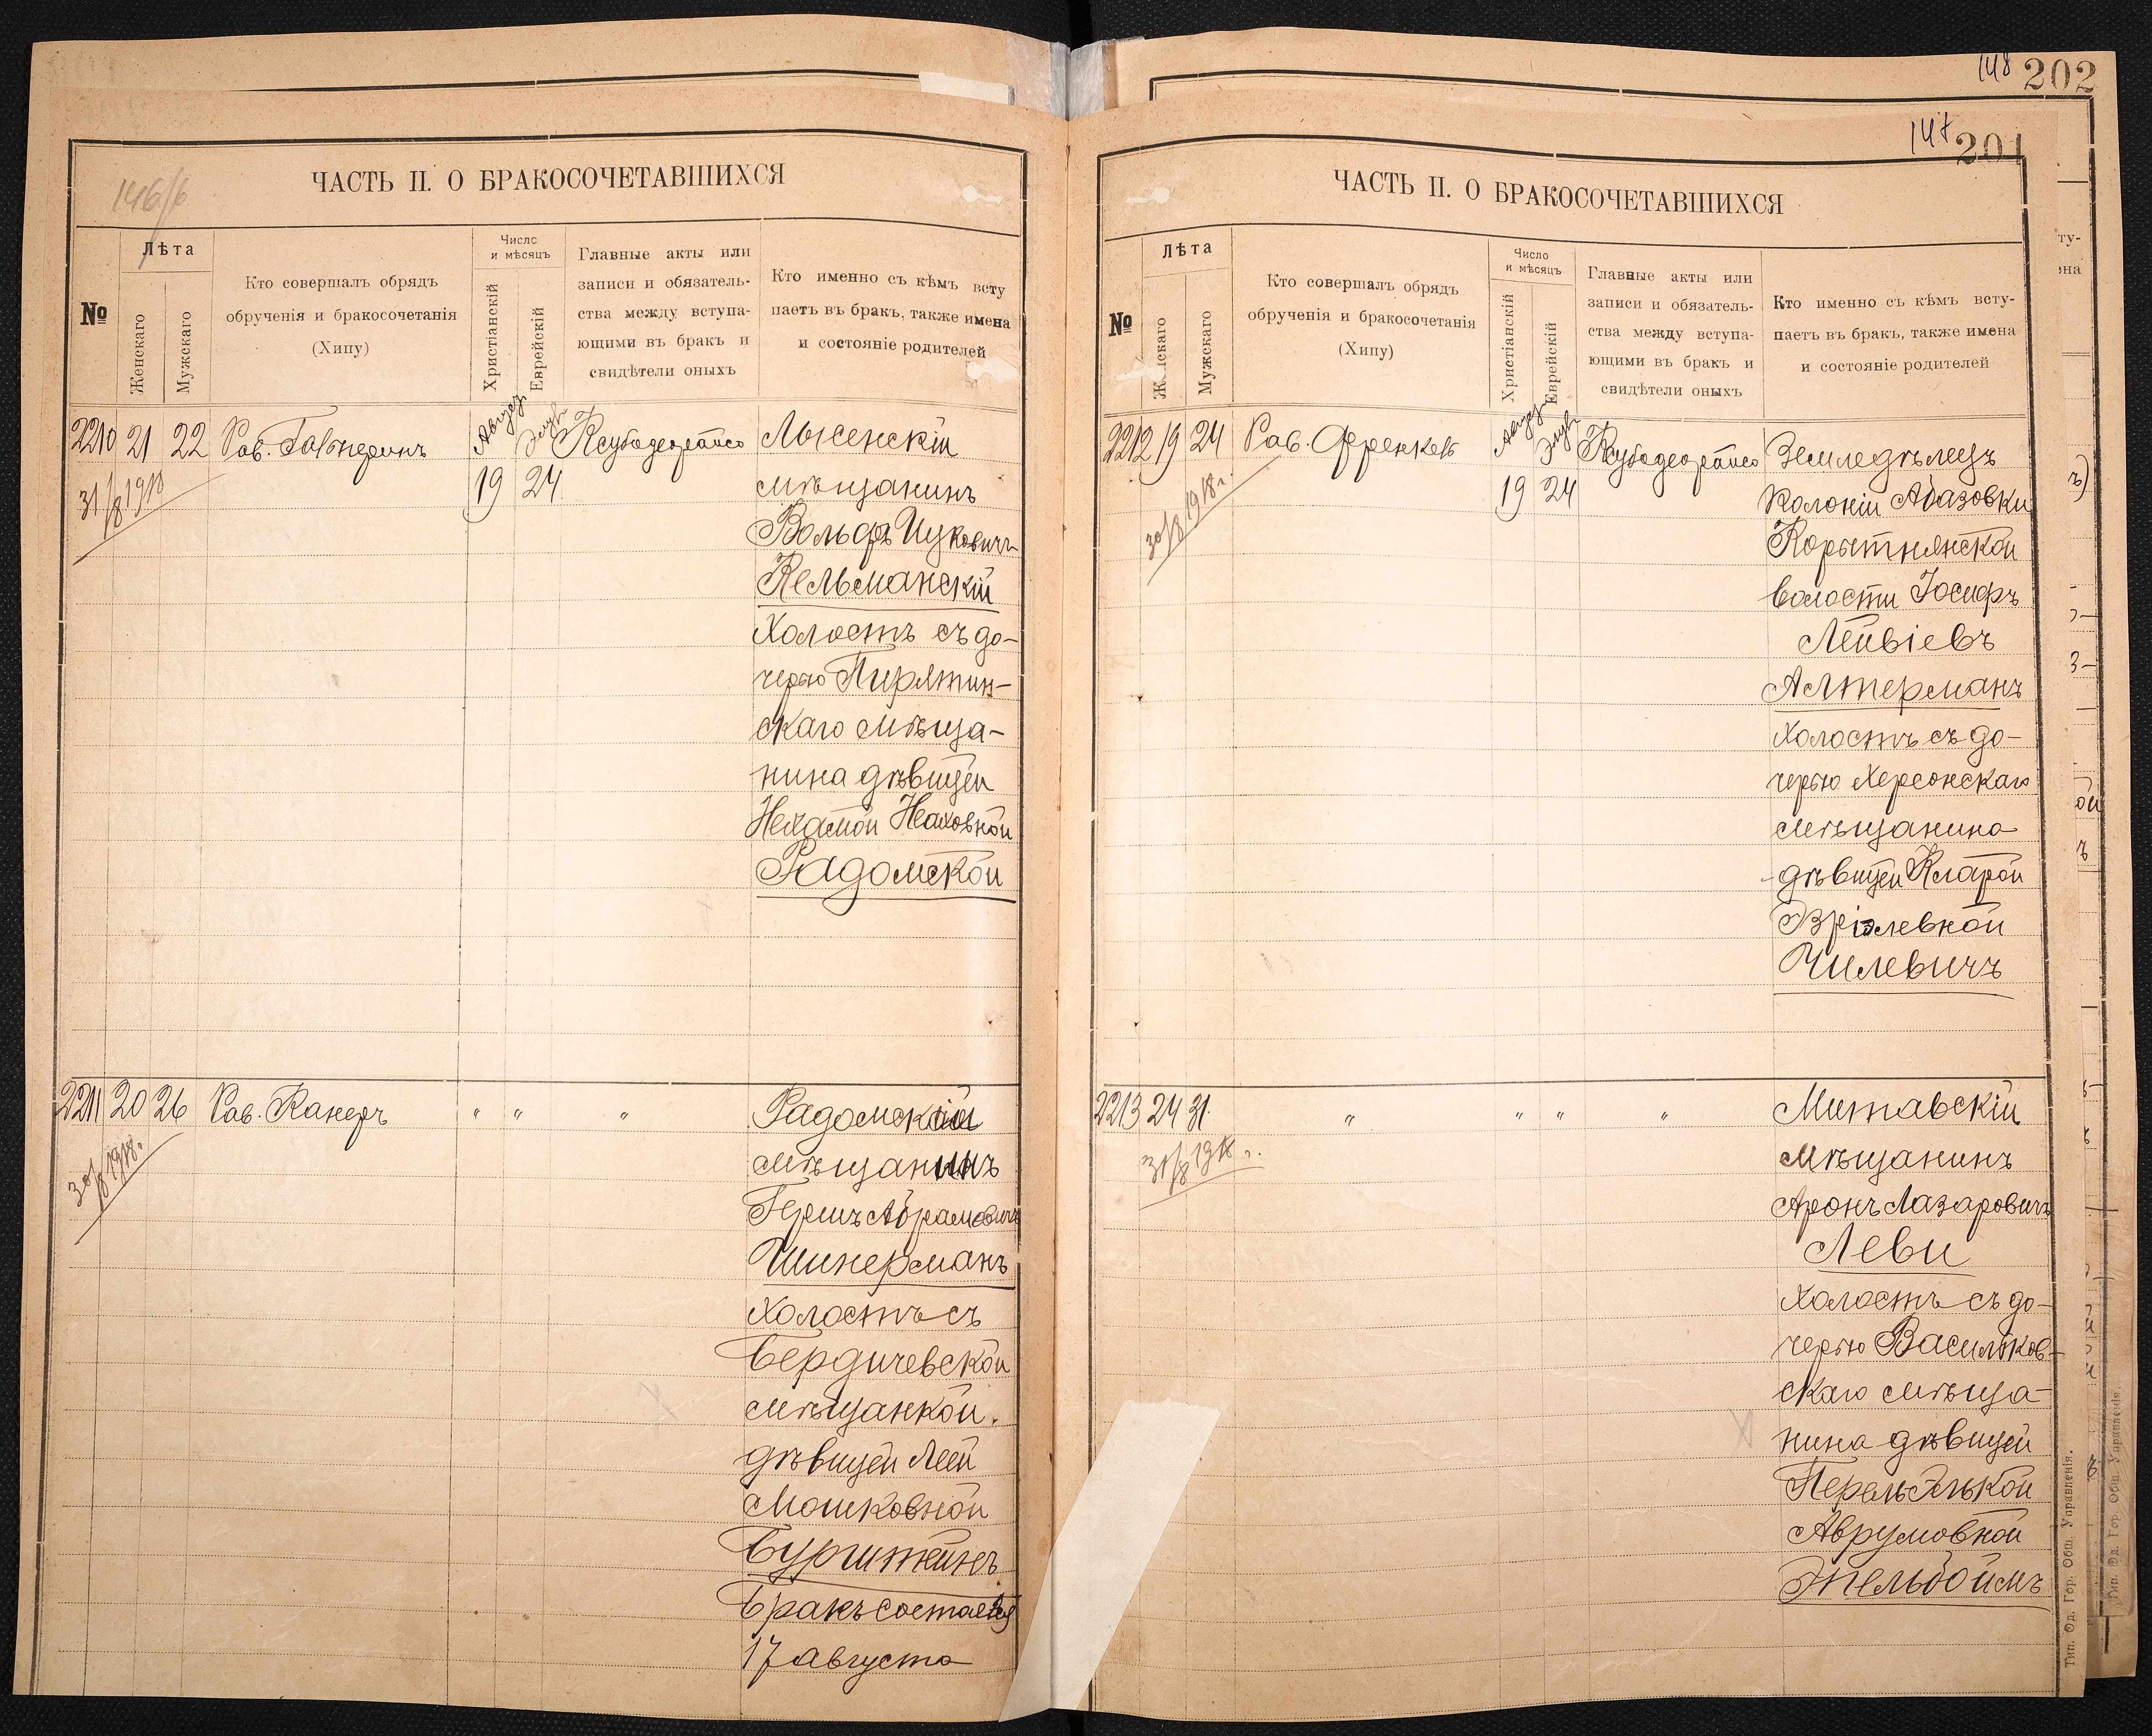 146/б
ЧАСТЬ II. О БРАКОСОЧЕТАВШИХСЯ
№
Лѣта
Женскаго
Мужскаго
Кто совершалъ обрядъ
обрученія и бракосочетанія
(Хипу)
Число
и мѣсяцъ
Христіанскій
Еврейскій
Главные акты или
записи и обязатель-
ства между вступа-
ющими въ бракъ и
свидѣтели оныхъ
Кто именно съ кѣмъ всту
паетъ въ бракъ, также имена
и состояніе родителей
2210 21 22 Рав. Гальперинъ
31/8 1918
Август Элул
19 24
Ксубадеорайсо
Лысенскій
мѣщанинъ
Вольфъ Ицковичъ
Кельманскій
Холостъ съ до-
черью Пирятин-
скаго мѣща-
нина дѣвицей
Нехамой Неаховной
Радомской
2211 20 26 Рав. Канеръ " " "
30/8 1918г.
Радомскій
мѣщанинъ
Гершъ Абрамовичъ
Шинерманъ
Холостъ съ
Бердичевской
мѣщанкой.
дѣвицей Леей
Мошковной
Бурштейнъ
Бракъ состоялся
17 августа
148 202
147 201
ЧАСТЬ II. О БРАКОСОЧЕТАВШИХСЯ
№
Лѣта
Женскаго
Мужскаго
Кто совершалъ обрядъ
обрученія и бракосочетанія
(Хипу)
Число
и мѣсяцъ
Христіанскій
Еврейскій
Главные акты или
записи и обязатель-
ства между вступа-
ющими въ бракъ и
свидѣтели оныхъ
Кто именно съ кѣмъ всту-
паетъ въ бракъ, также имена
и состояніе родителей
2212 19 24 Рав. Френкель
30/8 1918г.
Август Элул
19 24
Ксубадеорайсо
Земледѣлецъ
колоніи Абазовки
Корытнянской
волости Іосифъ
Лейвіевъ
Алтерманъ
холостъ съ до-
черью Херсонскаго
мѣщанина
дѣвицей Кларой
Эзріэлевной
Чилевичъ
2213 24 31. " " " "
31/8 1918 г.
Митавскій
мѣщанинъ
Аронъ Лазаровичъ
Леви
холостъ съ до-
черью Васильков-
скаго мѣща-
нина дѣвицей
Перель Элькой
Аврумовной
Эпельбоймъ
Тип. Од. Гор. Общ. Управленія.
Тип. Од. Гор. Общ. Управленія.